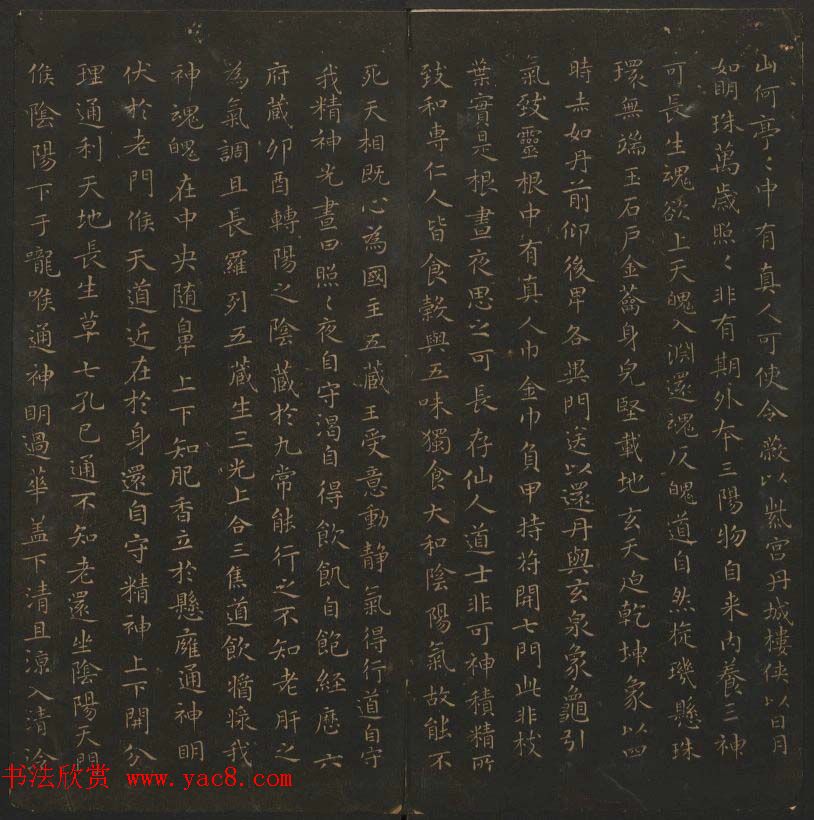 山何亭〻中有真人可使令蔽以紫宮丹城樓俠以日月
如明珠萬歲照〻非有期外本三陽物自来内養三神
可長生魂欲上天魄入淵還魂反魄道自然旋璣懸珠
環無端玉石戶金蘥身皃堅載地玄天迫乾坤象以四
時赤如丹前仰後卑各異門送以還丹與玄泉象龜引
氣致靈根中有真人巾金巾負甲持苻開七門此非枝
葉實是根晝夜思之可長存仙人道士非可神積精所
致和専仁人皆食穀與五味獨食大和陰陽氣故能不
死天相既心為國主五蔵王受意動静氣得行道自守
我精神光晝日照〻夜自守渴自得飲飢自飽經歷六
府蔵卯酉轉陽之陰蔵於九常能行之不知老肝之
為氣調且長羅列五蔵生三光上合三焦道飲
我
神魂魄在中央随鼻上下知肥香立於懸廱通神明
伏於老門候天道近在於身還自守精神上下開分
理通利天地長生草七孔已通不知老還坐陰陽天門
候陰陽下于嚨喉通神明過華盖下清且涼入清泠
书法欣赏 www.yac8.com